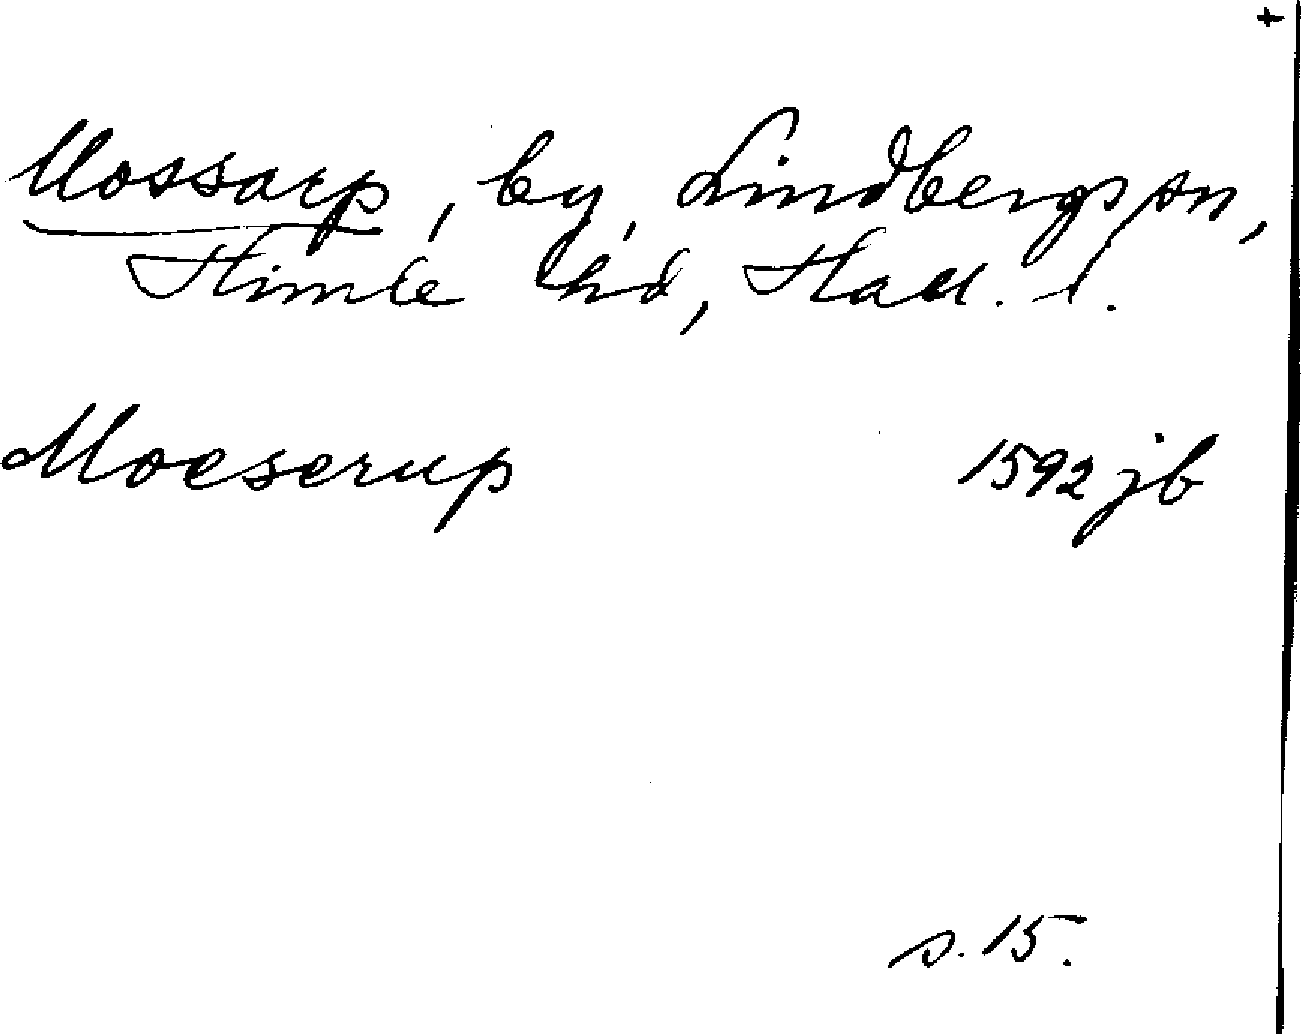 +
Mossarp, by, Lindbergs sn,
Himle hd, Hall. l.
Moeserup 1592 jb
s. 15.